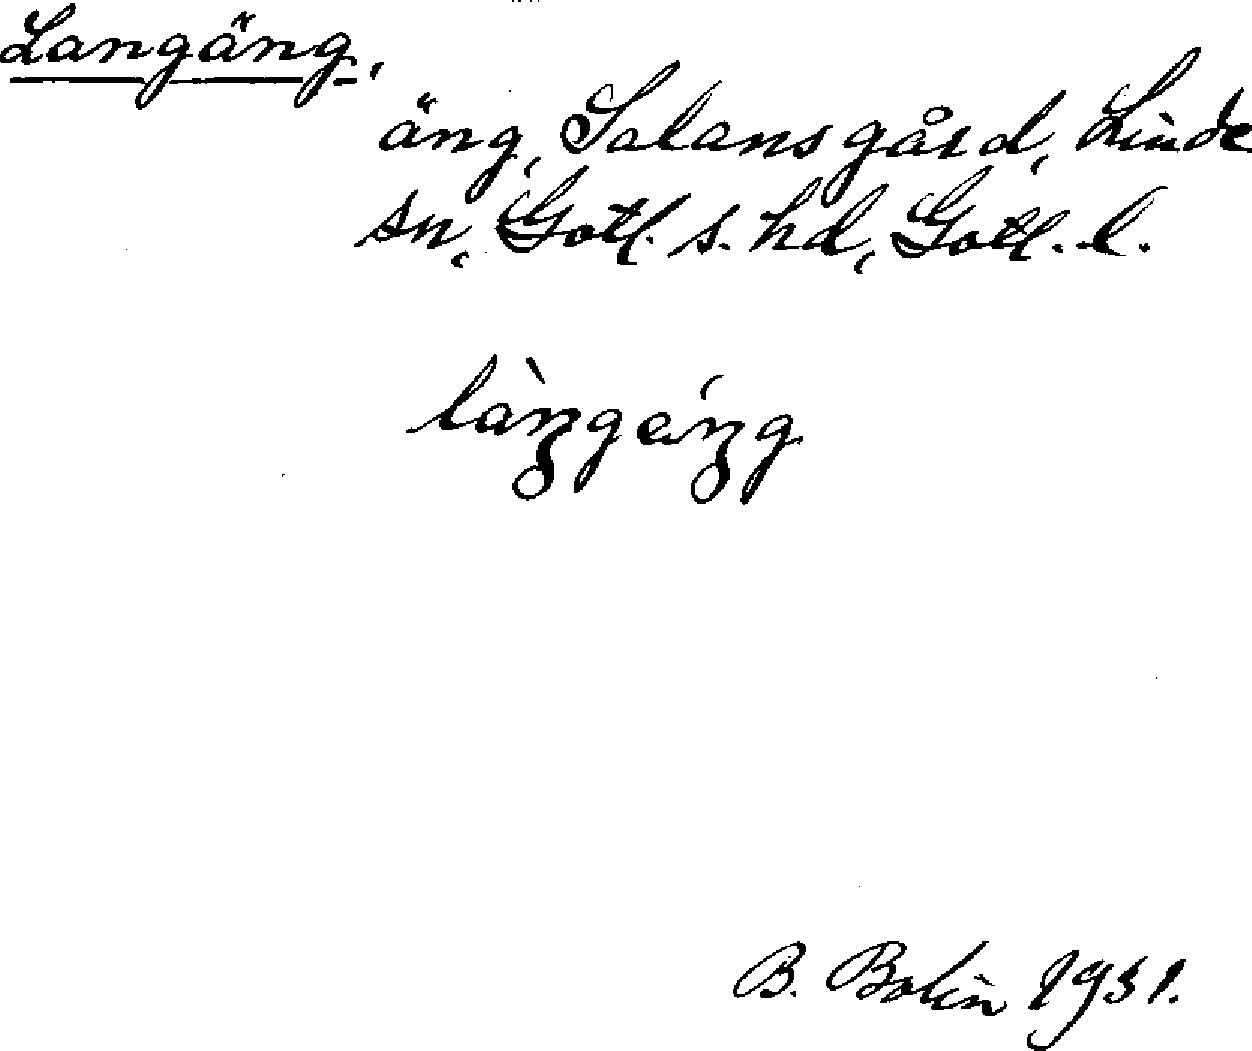 Langäng,
äng, Salansgård, Linde
sn, Gotl. s. hd, Gotl. l.
B. Bolin 1931.